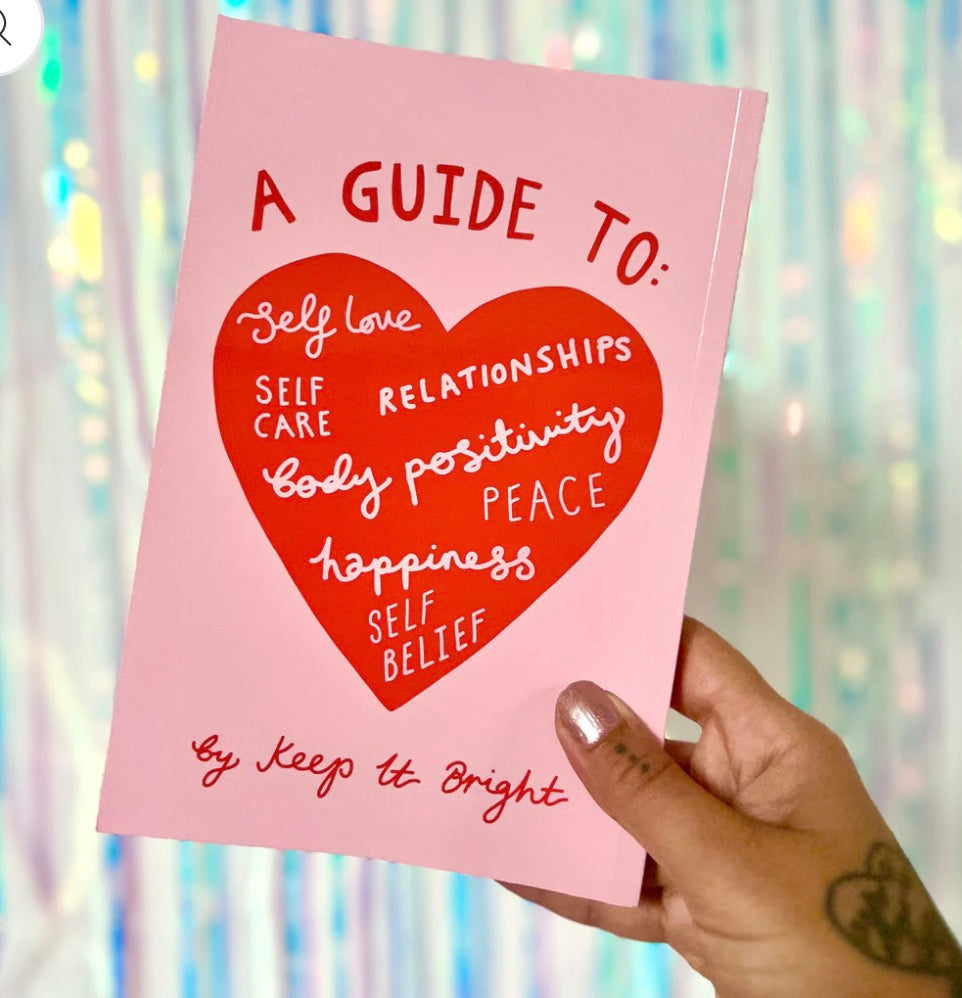 A GUIDE TO:
self love
SELF
CARE
RELATIONSHIPS
body positivity
PEACE
happiness
SELF
BELIEF
by Keep It Bright